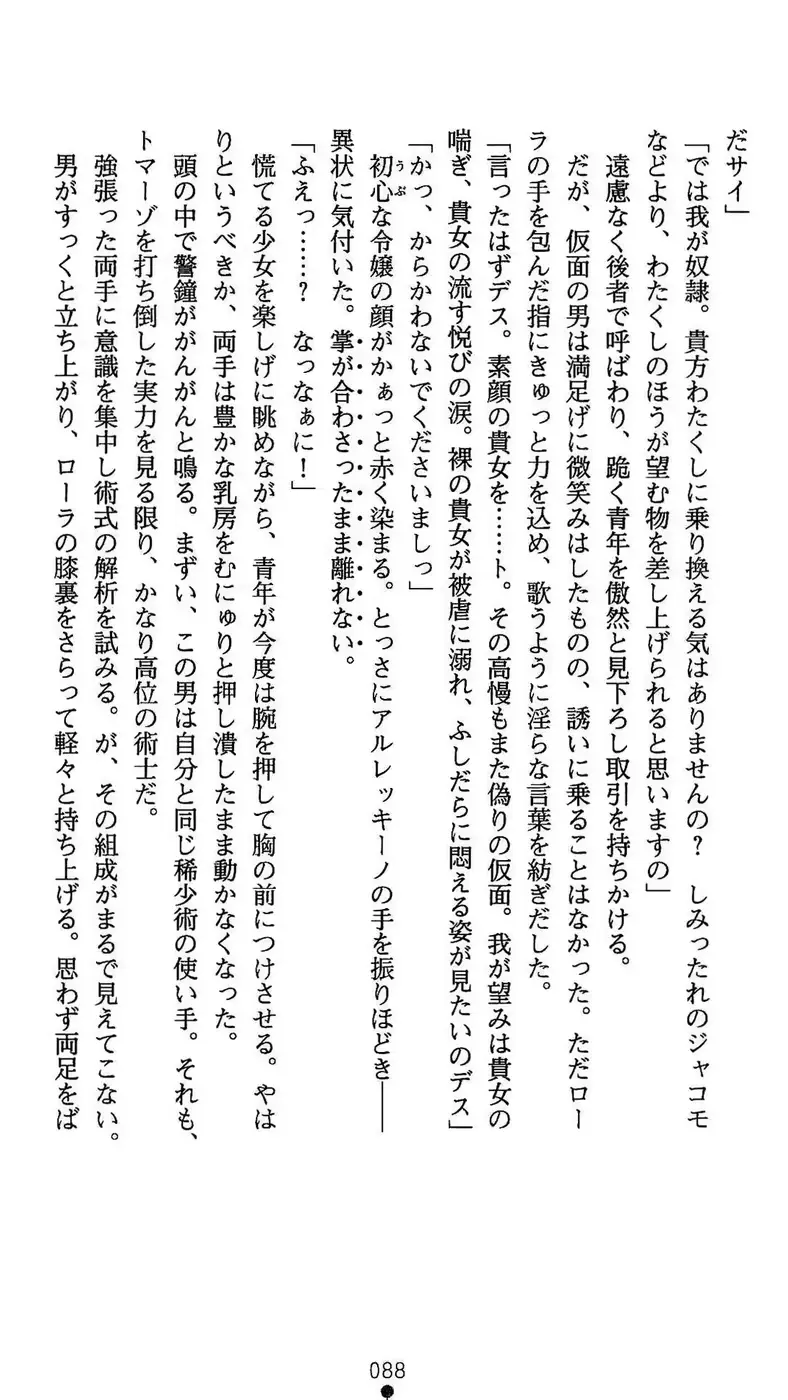 だサイ」
「では我が奴隷。貴方わたくしに乗り換える気はありませんの？　しみったれのジャコモ
などより、わたくしのほうが望む物を差し上げられると思いますの」
遠慮なく後者で呼ばわり、跪く青年を傲然と見下ろし取引を持ちかける。
だが、仮面の男は満足げに微笑みはしたものの、誘いに乗ることはなかった。ただロー
ラの手を包んだ指にきゅっと力を込め、歌うように淫らな言葉を紡ぎだした。
「言ったはずデス。素顔の貴女を……ト。その高慢もまた偽りの仮面。我が望みは貴女の
喘ぎ、貴女の流す悦びの涙。裸の貴女が被虐に溺れ、ふしだらに悶える姿が見たいのデス」
「かっ、からかわないでくださいましっ」
初心な令嬢の顔がかぁっと赤く染まる。とっさにアルレッキーノの手を振りほどき――
異状に気付いた。掌が合わさったまま離れない。
「ふえっ……？　なっなぁに！」
慌てる少女を楽しげに眺めながら、青年が今度は腕を押して胸の前につけさせる。やは
りというべきか、両手は豊かな乳房をむにゅりと押し潰したまま動かなくなった。
頭の中で警鐘ががんがんと鳴る。まずい、この男は自分と同じ稀少術の使い手。それも、
トマーゾを打ち倒した実力を見る限り、かなり高位の術士だ。
強張った両手に意識を集中し術式の解析を試みる。が、その組成がまるで見えてこない。
男がすっくと立ち上がり、ローラの膝裏をさらって軽々と持ち上げる。思わず両足をば
うぶ
088